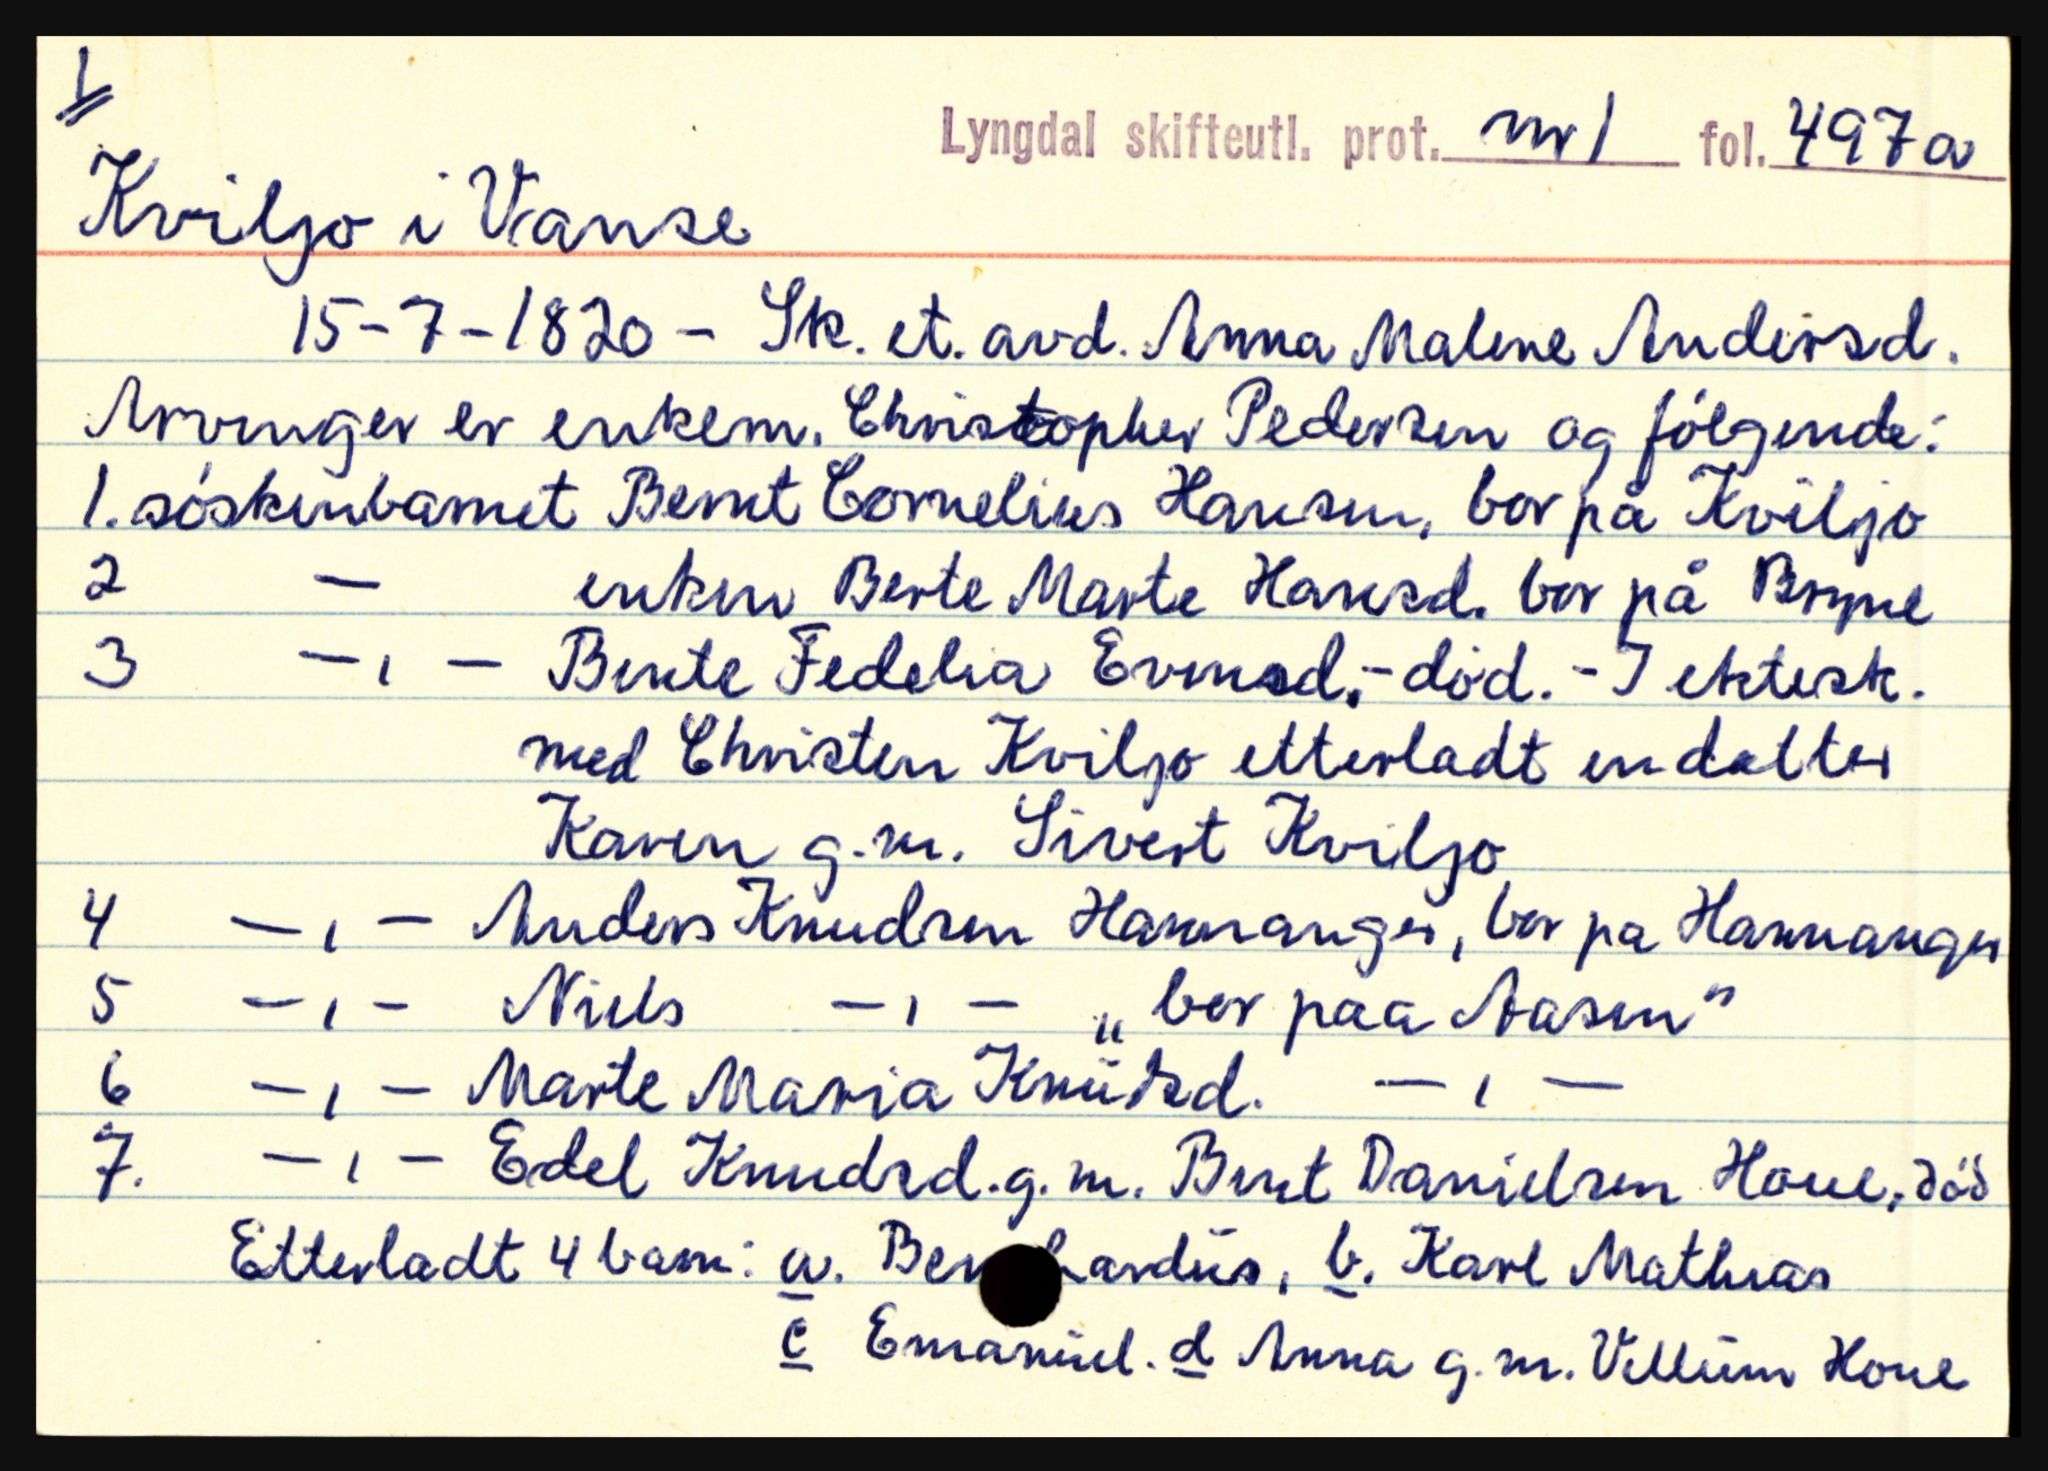 1
Lyngdal skifteutl. prot. nr 1 fol. 497a
Kviljo i Vanse
15-7-1820 - Sk. et. avd. Anna Malene Andersd.
Arvinger er enkem. Christopher Pedersen og følgende:
1. søskenbarnet Bernt Cornelius Hansen, bor på Kviljo
2 — enken Berte Marte Hansd. bor på Bryne
3 — , — Bente Fedelia Evensd. - død. - I ektesk.
med Christen Kviljo etterladt en datter
Karen g.m. Sivert Kviljo
4 — , — Anders Knudsen Hannanger, bor på Hannanger
5 — , — Niels — , — „bor paa Aasen"
6 — , — Marte Maria Knutsd. — , —
7. — , — Edel Knudsd. g.m. Bent Danielsen Houe, død
Etterladt 4 barn: a. Bernhardus, b. Karl Mathias
c Emanuel. d Anna g.m. Villum Houe